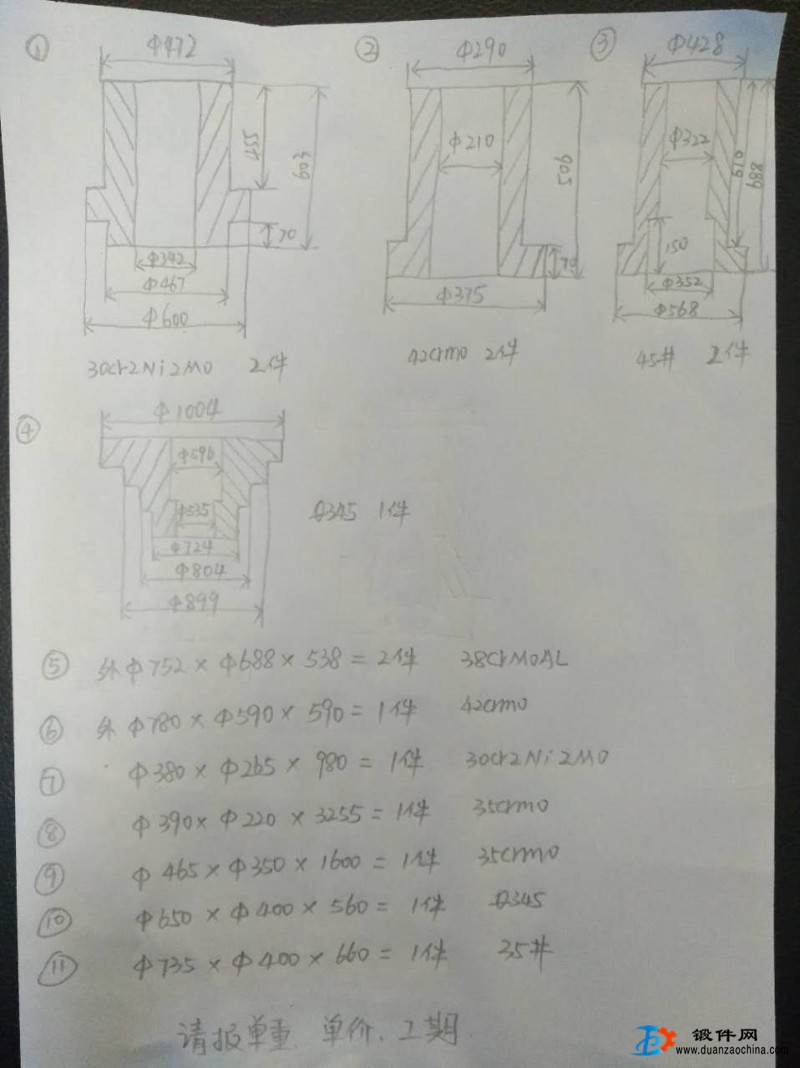 ①
Φ472
455
609
70
Φ342
Φ467
Φ600
30cr2Ni2Mo 2件
②
Φ290
Φ210
905
70
Φ375
42crmo 2件
③
Φ428
Φ322
610
688
150
Φ352
Φ568
45井 2件
④
Φ1004
Φ596
Φ535
Φ724
Φ804
Φ899
Q345 1件
⑤ 外Φ752×Φ688×538=2件 38CrMoAL
⑥ 外Φ780×Φ590×590=1件 42crmo
⑦ Φ380×Φ265×980=1件 30cr2Ni2Mo
⑧ Φ390×Φ220×3255=1件 35crmo
⑨ Φ465×Φ350×1600=1件 35crmo
⑩ Φ650×Φ400×560=1件 Q345
⑪ Φ735×Φ400×660=1件 35井
请报单重、单价、工期
锻件网
www.duanzaochina.com